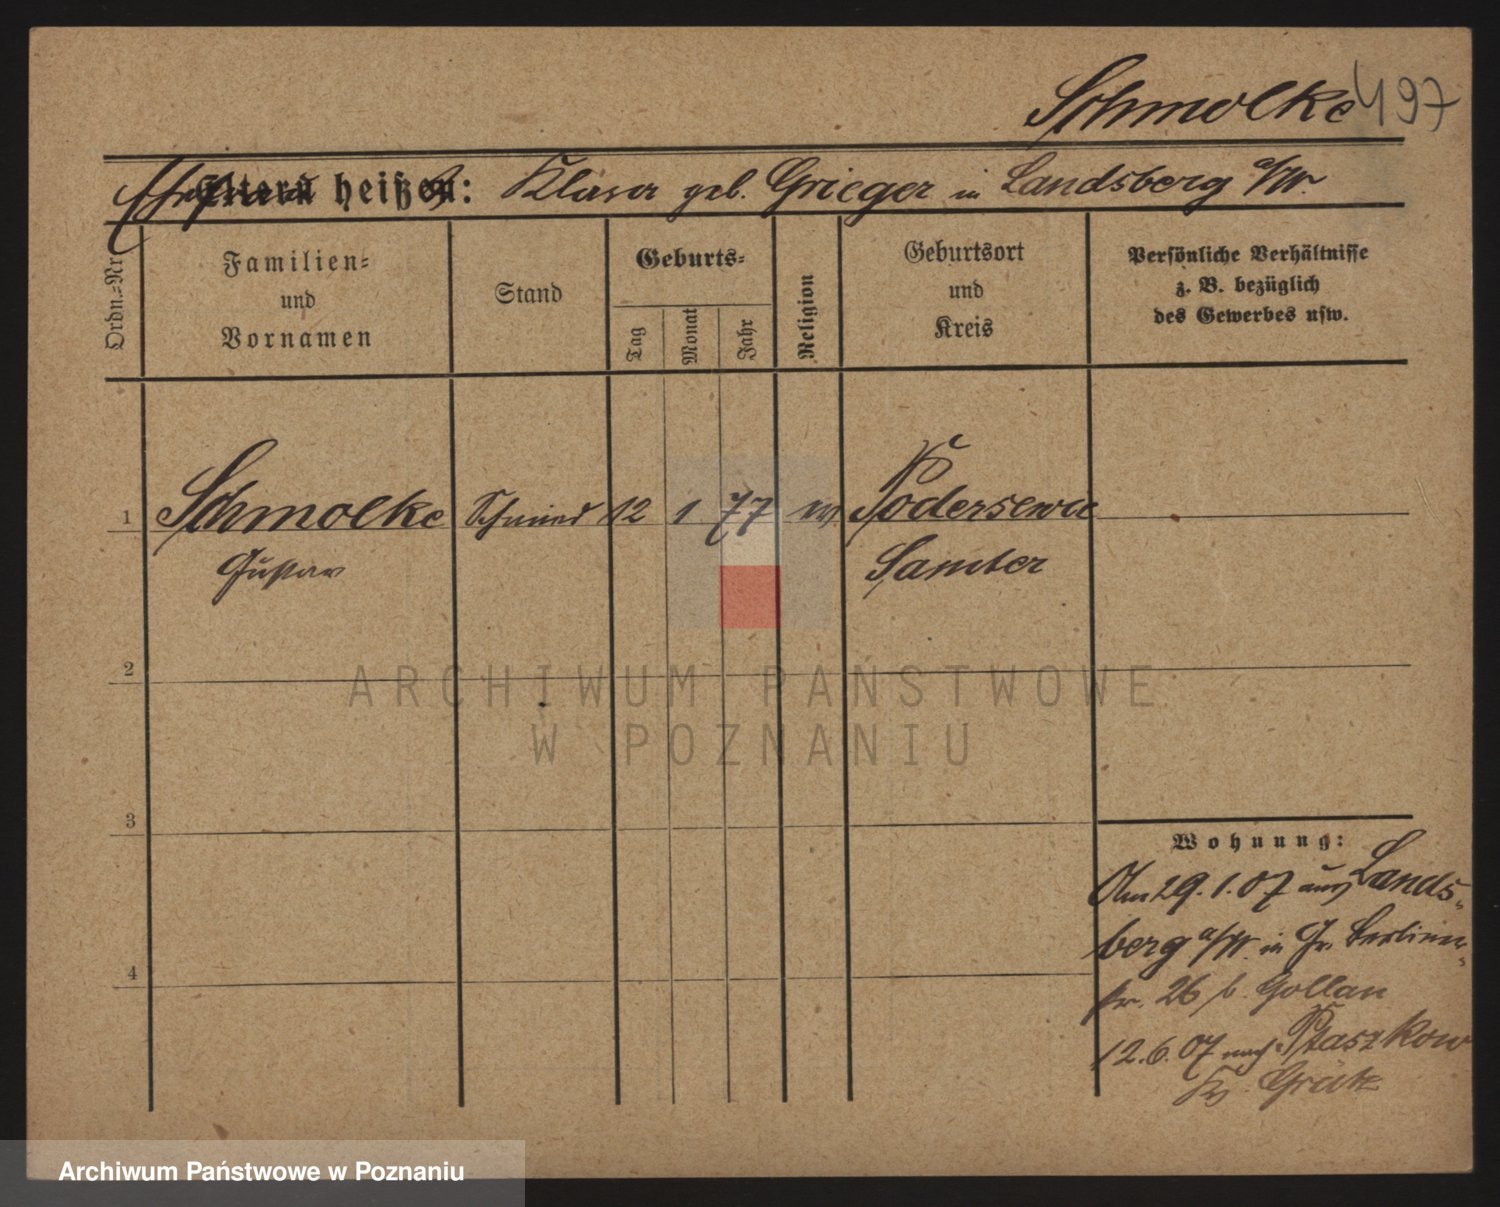 Schmolke 497
Ehefrau
Eltern heißen: Klara geb. Grieger in Landsberg a/W.
Ordn.-Nr.
Familien-
und
Vornamen
Stand
Geburts-
Tag
Monat
Jahr
Religion
Geburtsort
und
Kreis
Persönliche Verhältnisse
z. B. bezüglich
des Gewerbes usw.
1 Schmolke Schmied 12 1 77 ev Podersewa
Gustav Samter
2
3
4
Wohnung:
Am 29.1.07 aus Lands-
berg a/W. in Gr. Berliner-
str. 26 b. Gollan
12.6.07 nach Ptaszkow
Kr. Grätz
ARCHIWUM PAŃSTWOWE
W POZNANIU
Archiwum Państwowe w Poznaniu